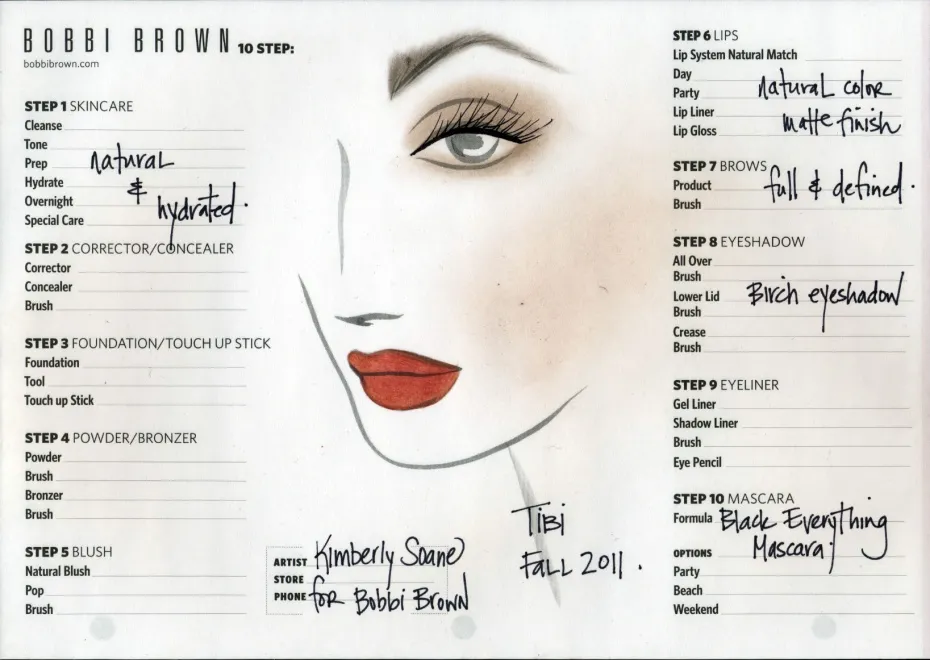 BOBBI BROWN 10 STEP:
bobbibrown.com
STEP 1 SKINCARE
Cleanse
Tone
Prep natural
Hydrate &
Overnight hydrated.
Special Care
STEP 2 CORRECTOR/CONCEALER
Corrector
Concealer
Brush
STEP 3 FOUNDATION/TOUCH UP STICK
Foundation
Tool
Touch up Stick
STEP 4 POWDER/BRONZER
Powder
Brush
Bronzer
Brush
STEP 5 BLUSH
Natural Blush
Pop
Brush
ARTIST Kimberly Soane
STORE
PHONE for Bobbi Brown
Tibi
Fall 2011.
STEP 6 LIPS
Lip System Natural Match
Day
Party natural color
Lip Liner
Lip Gloss matte finish
STEP 7 BROWS
Product full & defined.
Brush
STEP 8 EYESHADOW
All Over
Brush
Lower Lid Birch eyeshadow
Brush
Crease
Brush
STEP 9 EYELINER
Gel Liner
Shadow Liner
Brush
Eye Pencil
STEP 10 MASCARA
Formula Black Everything
OPTIONS Mascara
Party
Beach
Weekend